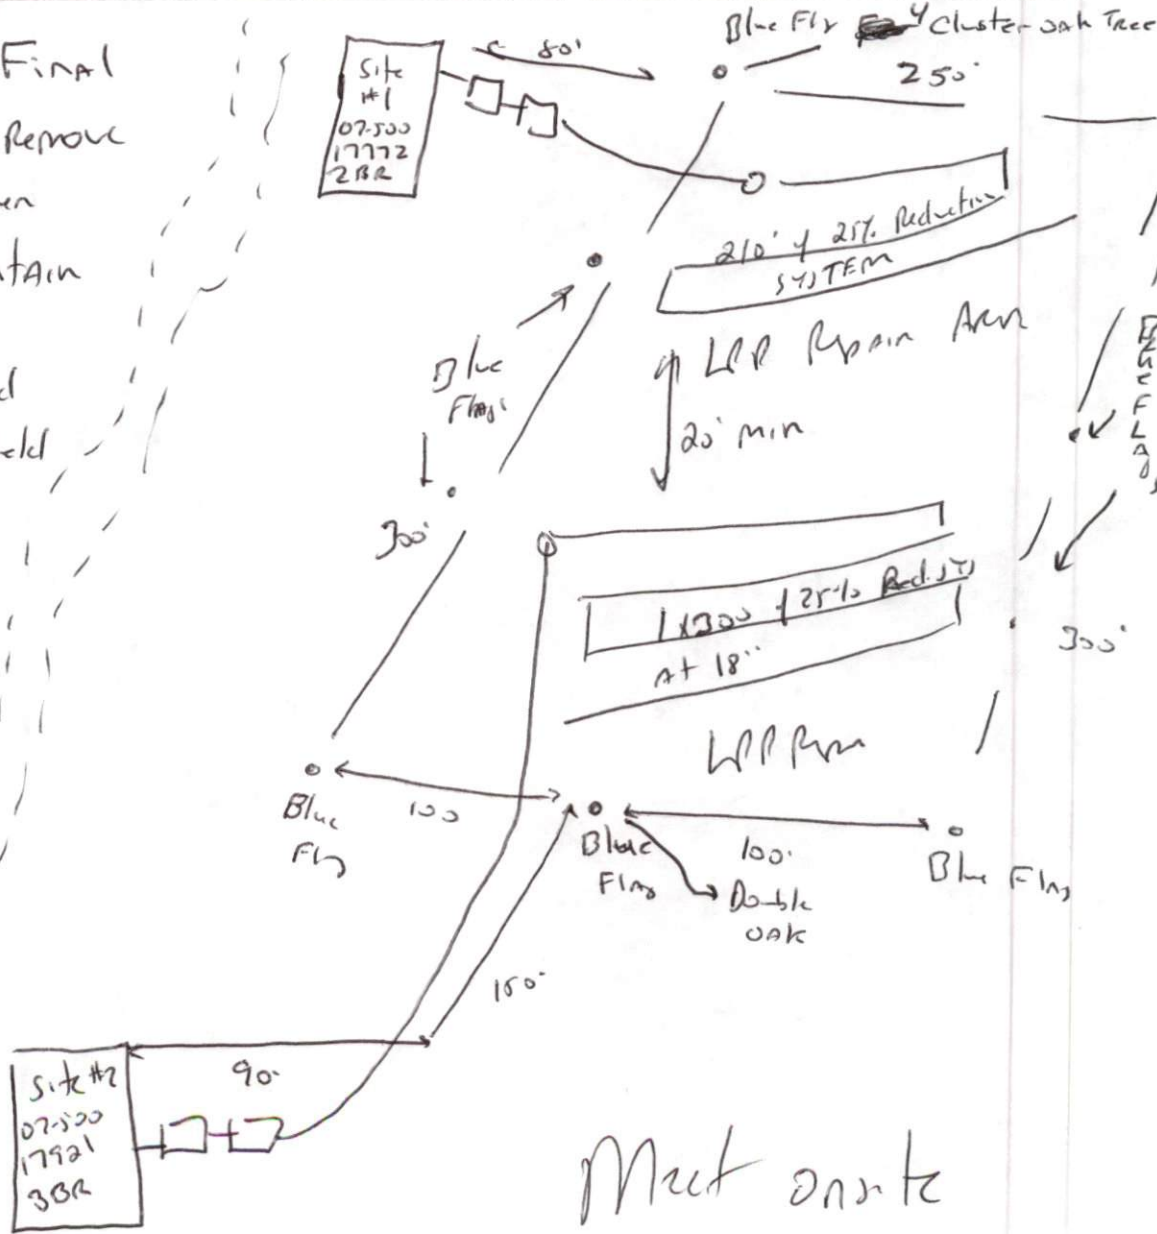 Final
Remove
en
tain
d
eld
Site
#1
07-500
17772
2BR
80'
Blue Flg 4 Cluster oak Tree
250'
210' of 25% Reduction
SYSTEM
LPP Repair Area
Blue
Flags
20' min
300'
Blue Flags
1x300 of 25% Red. sys
At 18"
300'
LPP Repair
Blue
Flg
100
Blue
Flag
100'
Double
oak
Blue Flag
150'
90'
Site #2
07-500
17921
3BR
Meet onsite